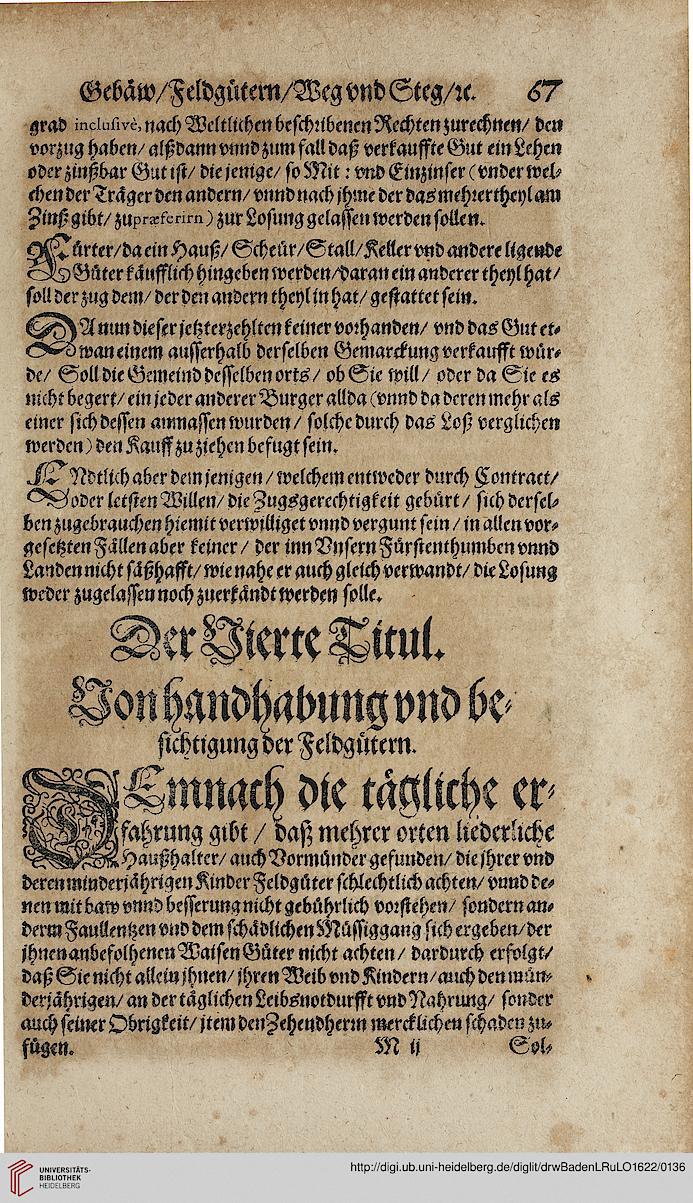 Gebäw/Feldgütern/Weg vnd Steg/ꝛc. 67
grad inclusivè, nach Weltlichen beschribenen Rechten zurechnen/ den
vorzug haben/ alßdann vnnd zum fall daß verkauffte Gut ein Lehen
oder zinßbar Gut ist/ die jenige/ so Mit : vnd Einzinser (vnder wel-
chen der Träger den andern/ vnnd nach jhme der das mehrer theyl am
Zinß gibt/ zu præferirn) zur Losung gelassen werden sollen.
Fürter/da ein Hauß/ Scheür/Stall/Keller vnd andere ligende
Güter käufflich hingeben werden/daran ein anderer theyl hat/
soll der zug dem/ der den andern theyl in hat/ gestattet sein.
DA nun dieser jetzterzehlten keiner vorhanden/ vnd das Gut et-
wan einem ausserhalb derselben Gemarckung verkaufft wür-
de/ Soll die Gemeind desselben orts/ ob Sie will/ oder da Sie es
nicht begert/ ein jeder anderer Burger allda (vnnd da deren mehr als
einer sich dessen anmassen wurden/ solche durch das Loß verglichen
werden) den Kauff zu ziehen befugt sein.
ENdtlich aber dem jenigen/ welchem entweder durch Contract/
oder letsten Willen/ die Zugsgerechtigkeit gebürt/ sich dersel-
ben zugebrauchen hiemit verwilliget vnnd vergunt sein/ in allen vor-
gesetzten Fällen aber keiner/ der inn Vnsern Fürstenthumben vnnd
Landen nicht säßhafft/ wie nahe er auch gleich verwandt/ die Losung
weder zugelassen noch zuerkändt werden solle.
Der Vierte Titul.
Von handhabung vnd be-
sichtigung der Feldgütern.
DEmnach die tägliche er-
fahrung gibt / daß mehrer orten liederliche
Haußhalter/ auch Vormünder gefunden/ die jhrer vnd
deren minderjährigen Kinder Feldgüter schlechtlich achten/ vnnd de-
nen mit baw vnnd besserung nicht gebührlich vorstehen/ sondern an-
derm Faullentzen vnd dem schädlichen Müssiggang sich ergeben/der
jhnen anbefolhenen Waisen Güter nicht achten/ dardurch erfolgt/
daß Sie nicht allein jhnen/ jhren Weib vnd Kindern/auch den mün-
derjährigen/ an der täglichen Leibsnotdurfft vnd Nahrung/ sonder
auch seiner Obrigkeit/ jtem den Zehendherrn mercklichen schaden zu-
fügen. M ij Sol-
UNIVERSITÄTS-
BIBLIOTHEK
HEIDELBERG
http://digi.ub.uni-heidelberg.de/diglit/drwBadenLRuLO1622/0136